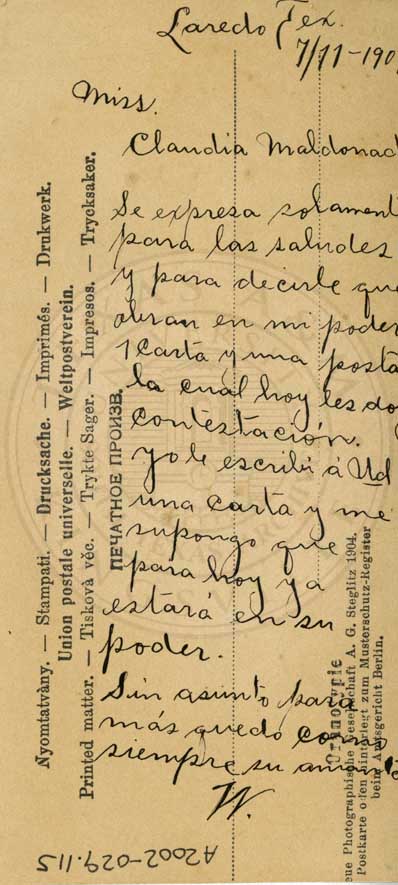 Laredo Tex.
7/11-190
Miss.
Claudia Maldonad
Se expresa solament
para las saludes
y para decirle que
obran en mi poder
1 carta y una posta
la cual hoy les do
contestación.
Yo le escribi á Ud
una carta y me
supongo que
para hoy ya
estará en su
poder.
Sin asunto para
más quedo como
siempre su
W.
Nyomtatvàny. — Stampati. — Drucksache. — Imprimés. — Drukwerk.
Union postale universelle. — Weltpostverein.
Printed matter. — Tiskovà věc. — Trykte Sager. — Impresos. — Trycksaker.
ПЕЧАТНОЕ ПРОИЗВ.
Orthotypie
eue Photographische Gesellschaft A. G. Steglitz 1904.
Postkarte oden hinterlegt zum Musterschutz-Register
beim Amtsgericht Berlin.
A2002-029.115